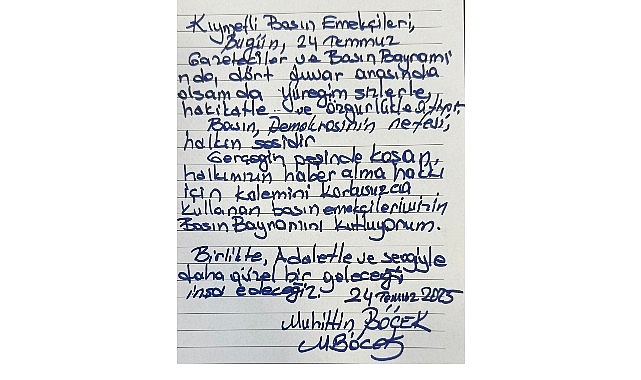 Kıymetli Basın Emekçileri,
Bugün, 24 Temmuz
Gazeteciler ve Basın Bayramı
nda, dört duvar arasında
olsam da yüreğim sizlerle,
hakikatle ve özgürlükle atıyor.
Basın, Demokrasinin nefesi,
halkın sesidir
Gerçeğin peşinde koşan,
halkımızın haber alma hakkı
için kalemini korkusuzca
kullanan basın emekçilerimizin
Basın Bayramını kutluyorum.
Birlikte, Adaletle ve sevgiyle
daha güzel bir geleceği
inşa edeceğiz. 24 Temmuz 2025
Muhittin BÖCEK
MBöcek